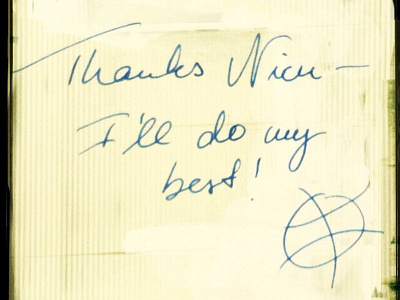 Thanks Nicu -
I'll do my
best!